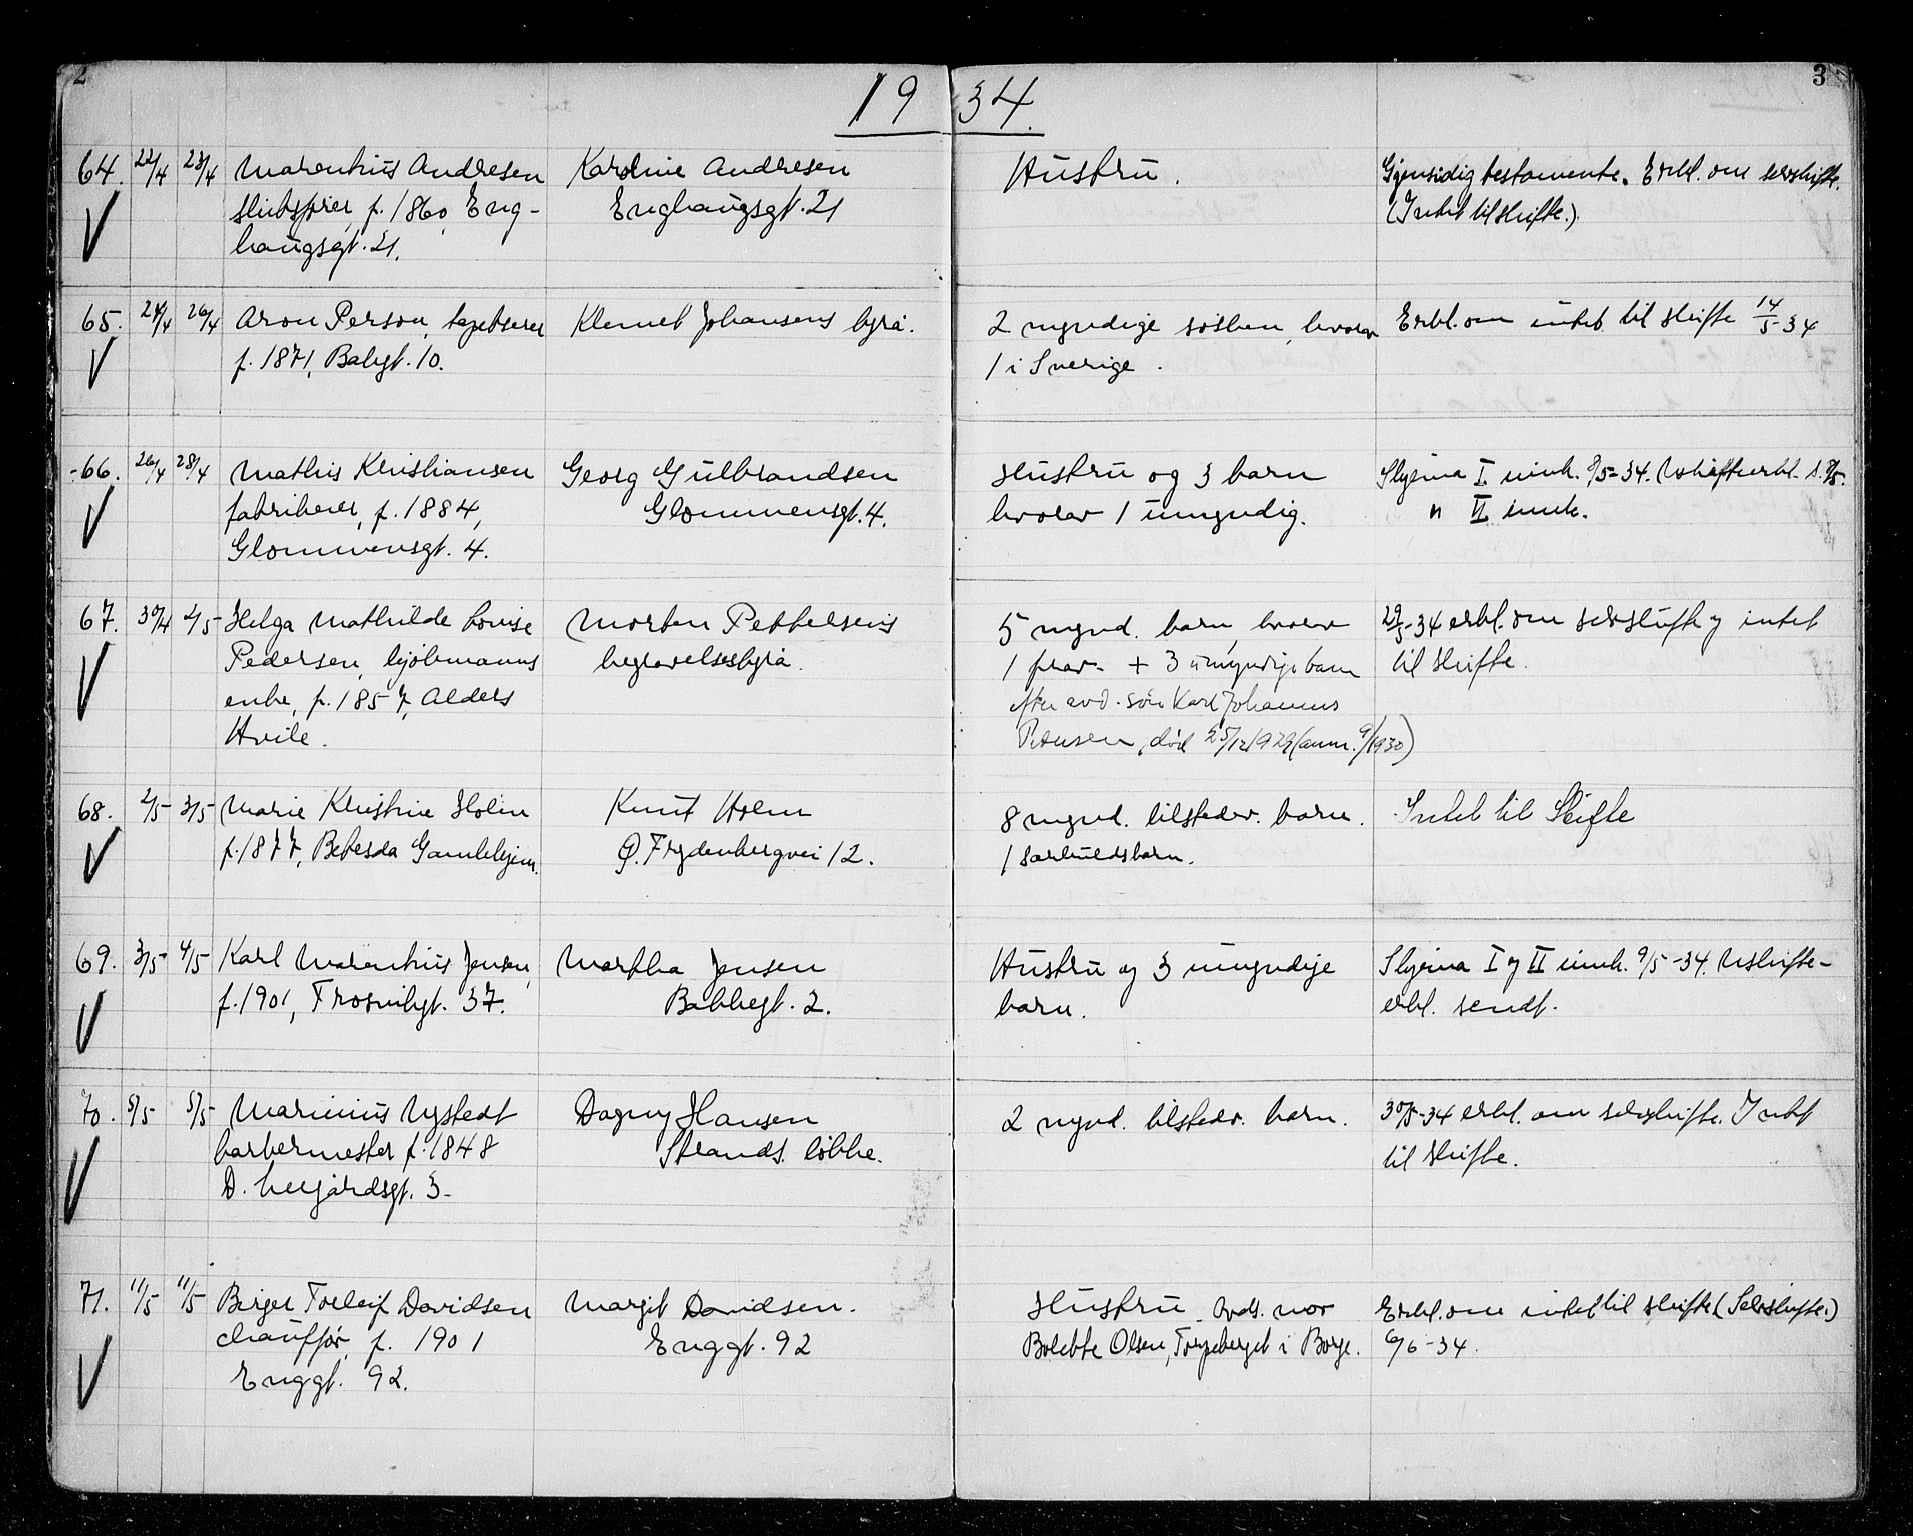 2
3
19 34.
64. 22/4 23/4 Marenhius Andresen
skibsfører, f. 1860, Eng-
haugsgt. 21.
Karoline Andresen
Enghaugsgt. 21
Hustru.
Gjensidig testamente. Erkl. om selvskifte.
(Intet til skifte.)
65. 24/4 26/4 Aron Person, tapetserer
f. 1871, Bakgt. 10.
Klemet Johansens byrå.
2 myndige søsken, hvorav
1 i Sverige.
Erkl. om intet til skifte 14/5-34
66. 26/4 28/4 Mathis Kristiansen
fabrikeier, f. 1884,
Glommensgt. 4.
Georg Gulbrandsen
Glommensgt. 4.
Hustru og 3 barn
hvorav 1 umyndig.
Skjema I innk. 8/5-34. Uskifteerkl. s. 8/5.
" II innk.
67. 30/4 2/5 Helga Mathilde Lovise
Pedersen, kjøbmanns
enke, f. 1857, Alders
Hvile.
Morten Pettersens
begravelsesbyrå.
5 mynd. barn, hvorav
1 frav. + 3 umyndige barn
efter avd. søn Karl Johannes
død 25/12 1929 (anm. 9/1930)
29/5-34 erkl. om selvskifte og intet
til skifte.
68. 2/5 3/5 Marie Kristine Holm
f. 1877, Betesda Gamlehjem.
Knut Holm
Ø. Frydenbergvei 12.
8 mynd. tilstedev. barn.
1 særkuldsbarn.
Intet til Skifte
69. 3/5 4/5 Karl Marenhius Jensen,
f. 1901, Trosvikgt. 37.
Martha Jensen
Bakkegt. 2.
Hustru og 3 umyndige
barn.
Skjema I og II innk. 9/5-34. Uskifte-
erkl. sendt.
70. 5/5 5/5 Marinius Nystedt
barbermester f. 1848
3.
Dagny Hansen
Strands løkke.
2 mynd. tilstedev. barn.
30/5-34 erkl. om selvskifte. Intet
til skifte.
71. 11/5 11/5 Birger Torleif Davidsen
chauffør, f. 1901
Enggt. 92.
Margit Davidsen.
Enggt. 92
Hustru. Avds. mor
Bolette Olsen, Torpeberget i Borge.
Erkl. om intet til skifte (Selvskifte.)
6/6-34.